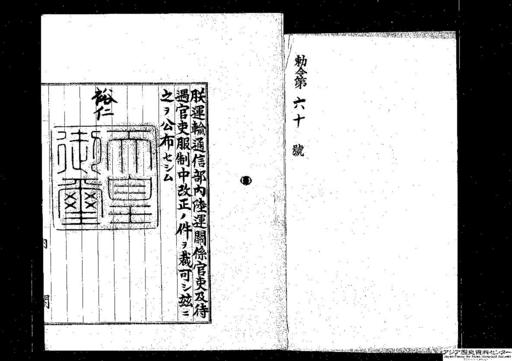 勅令第六十號
朕運輸通信部內陸運關係官吏及待
遇官吏服制中改正ノ件ヲ裁可シ玆ニ
之ヲ公布セシム
裕仁
天皇
御璽
內
閣
アジア歴史資料センター